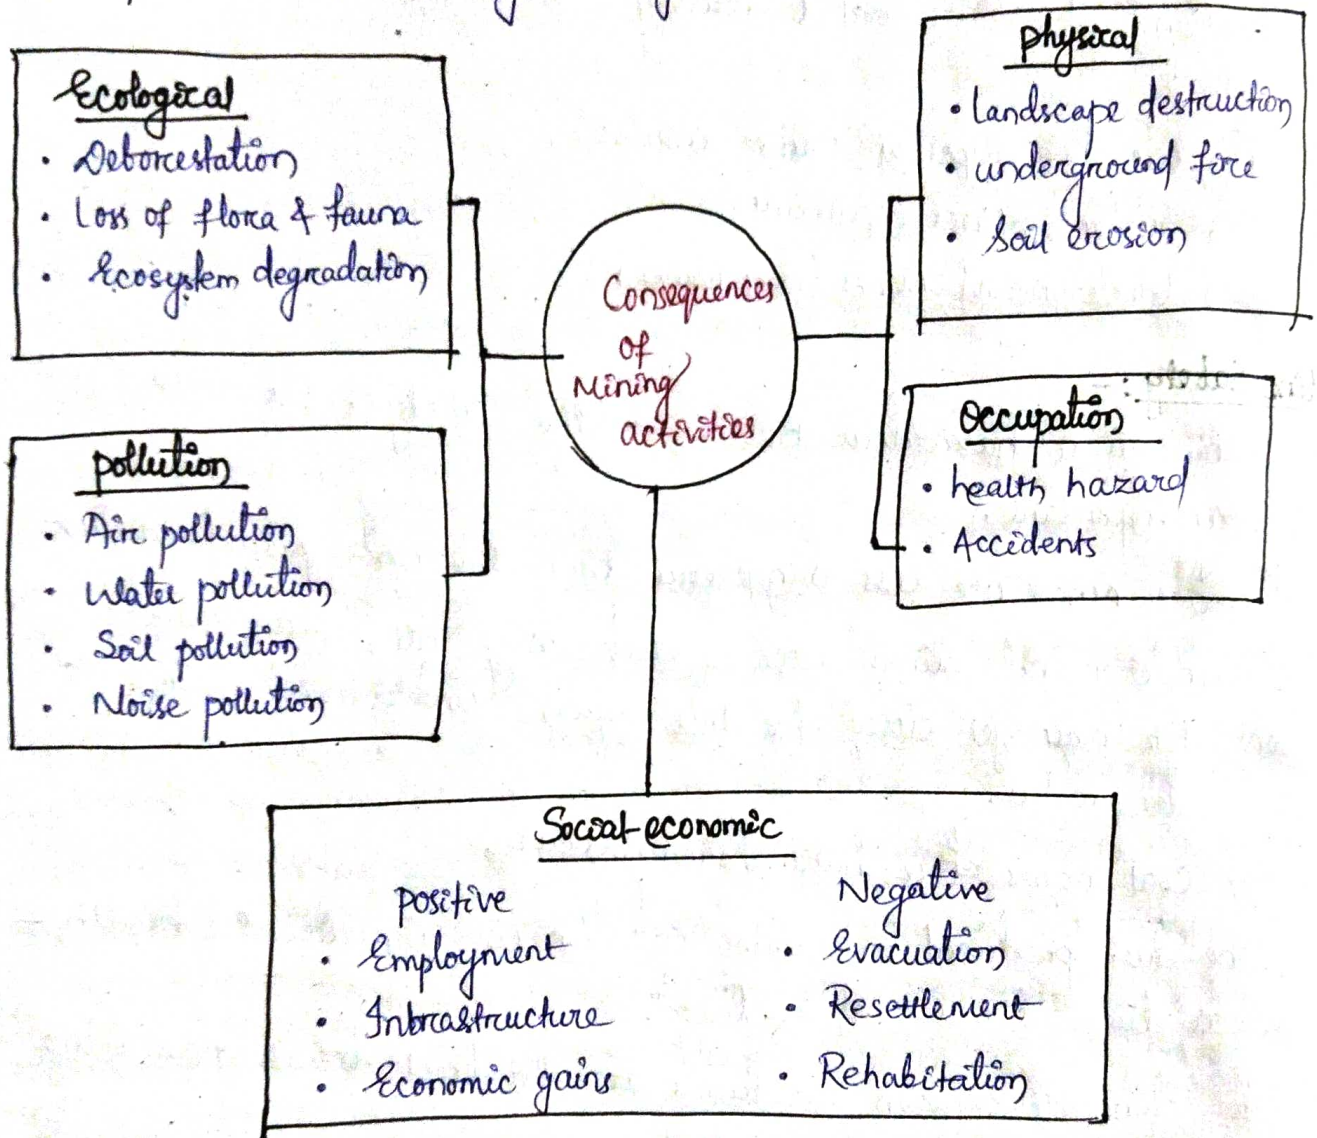 Ecological
• Deforestation
• Loss of flora & fauna
• Ecosystem degradation
pollution
• Air pollution
• Water pollution
• Soil pollution
• Noise pollution
Consequences
of
Mining
activities
physical
• landscape destruction
• underground fire
• Soil erosion
Occupation
• health hazard
• Accidents
Social-economic
positive
• Employment
• Infrastructure
• Economic gains
Negative
• Evacuation
• Resettlement
• Rehabitation